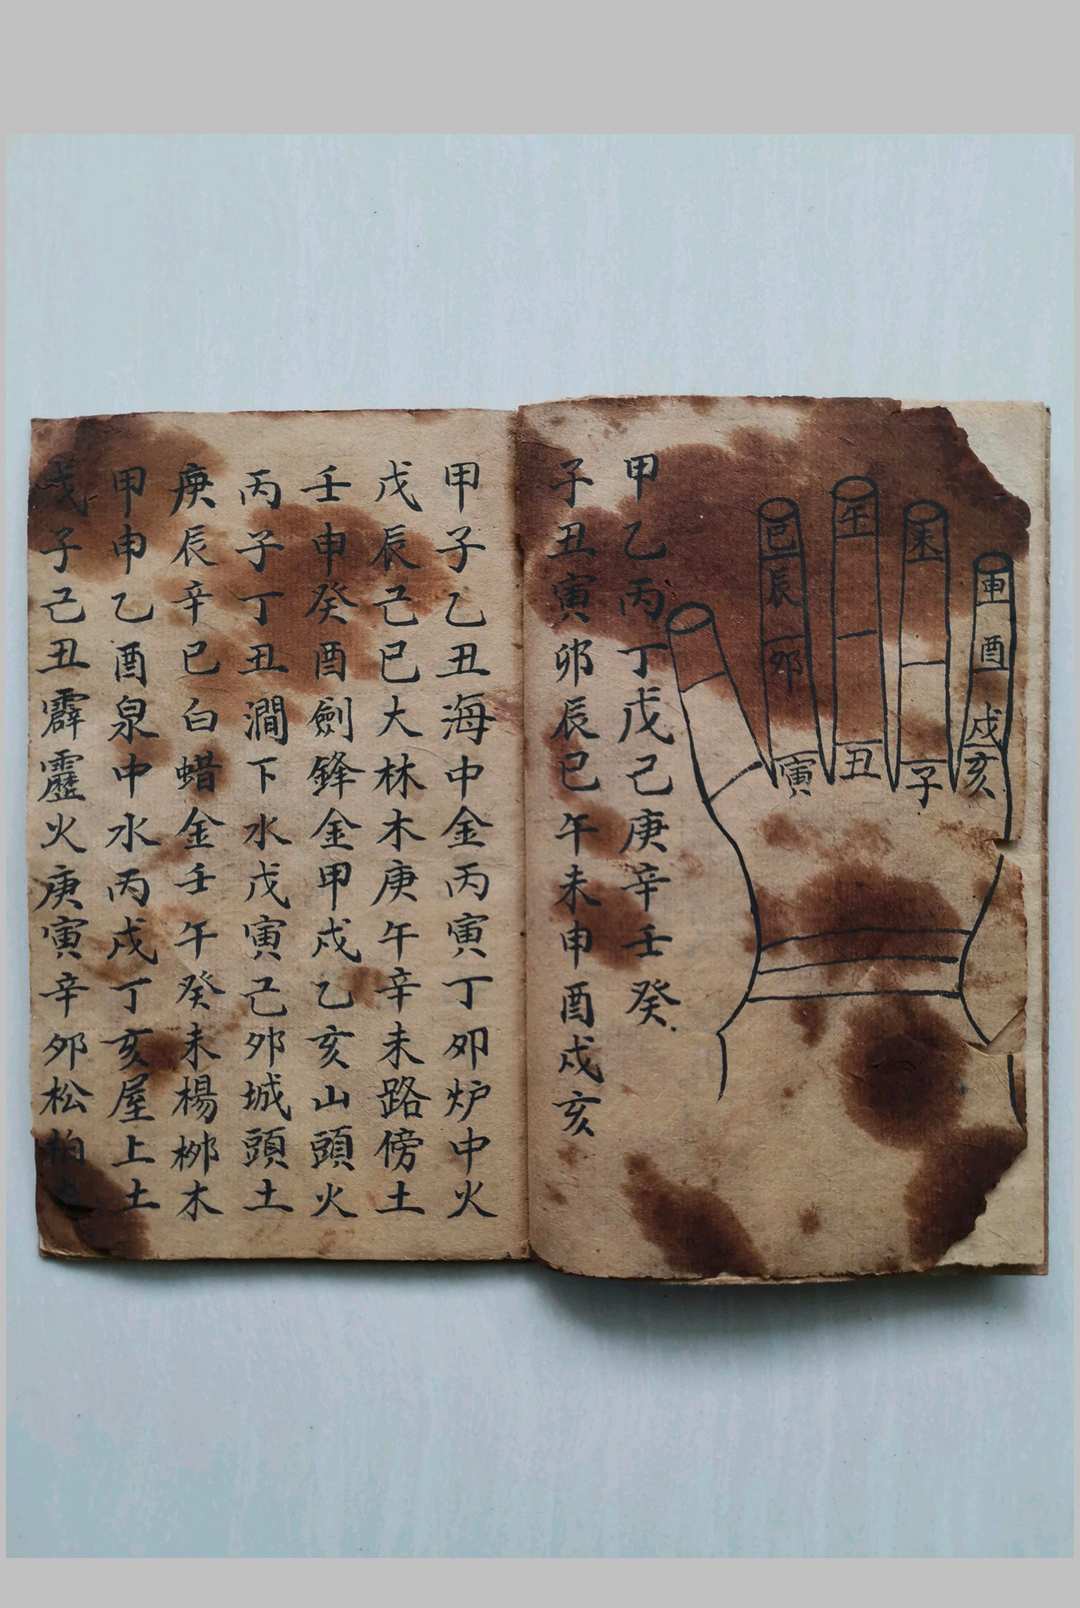 巳
辰
卯
寅
午
丑
未
子
申
酉
戌
亥
甲乙丙丁戊己庚辛壬癸
子丑寅卯辰巳午未申酉戌亥
甲子乙丑海中金丙寅丁夘炉中火
戊辰己巳大林木庚午辛未路傍土
壬申癸酉劍鋒金甲戌乙亥山頭火
丙子丁丑澗下水戊寅己夘城頭土
庚辰辛巳白蜡金壬午癸未楊桞木
甲申乙酉泉中水丙戌丁亥屋上土
戊子己丑霹靂火庚寅辛夘松柏